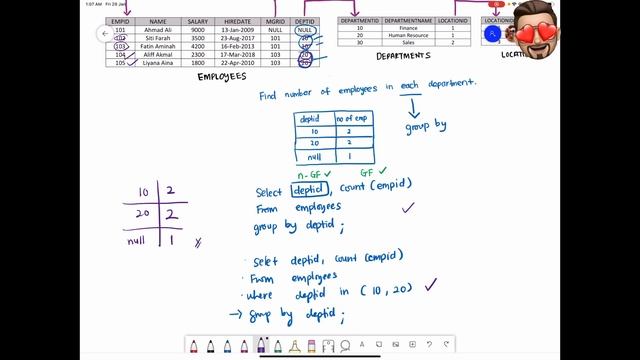 1:07 AM Fri 29 Jan
EMPID NAME SALARY HIREDATE MGRID DEPTID
101 Ahmad Ali 9000 13-Jan-2009 NULL NULL
102 Siti Farah 5000 23-Aug-2017 101 10
103 Fatin Aminah 4200 16-Feb-2013 101 10
104 Aliff Akmal 2300 17-Mar-2018 103 20
105 Liyana Aina 1800 22-Apr-2010 103 20
EMPLOYEES
DEPARTMENTID DEPARTMENTNAME LOCATIONID
10 Finance 1
20 Human Resource 1
30 Sales 2
DEPARTMENTS
Find number of employees in each department.
group by
deptid no of emp
10 2
20 2
null 1
n-GF ✓ GF ✓
Select deptid, count (empid)
From employees ✓
group by deptid ;
10 2
20 2
null 1
Select deptid, count (empid)
From employees
where deptid in ( 10 , 20) ✓
→ group by deptid ;